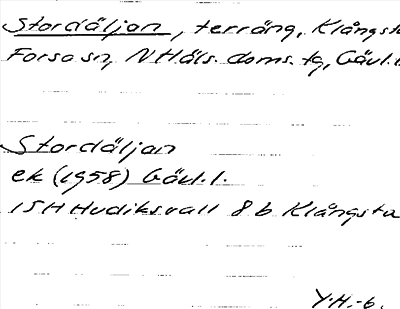 Stordäljan, terräng, Klångsta
Forsa sn, N Häls. doms. tg, Gävl.l.
Stordäljan
ek (1958) Gävl.l.
15H Hudiksvall 8b Klångsta
Y.H.-6.